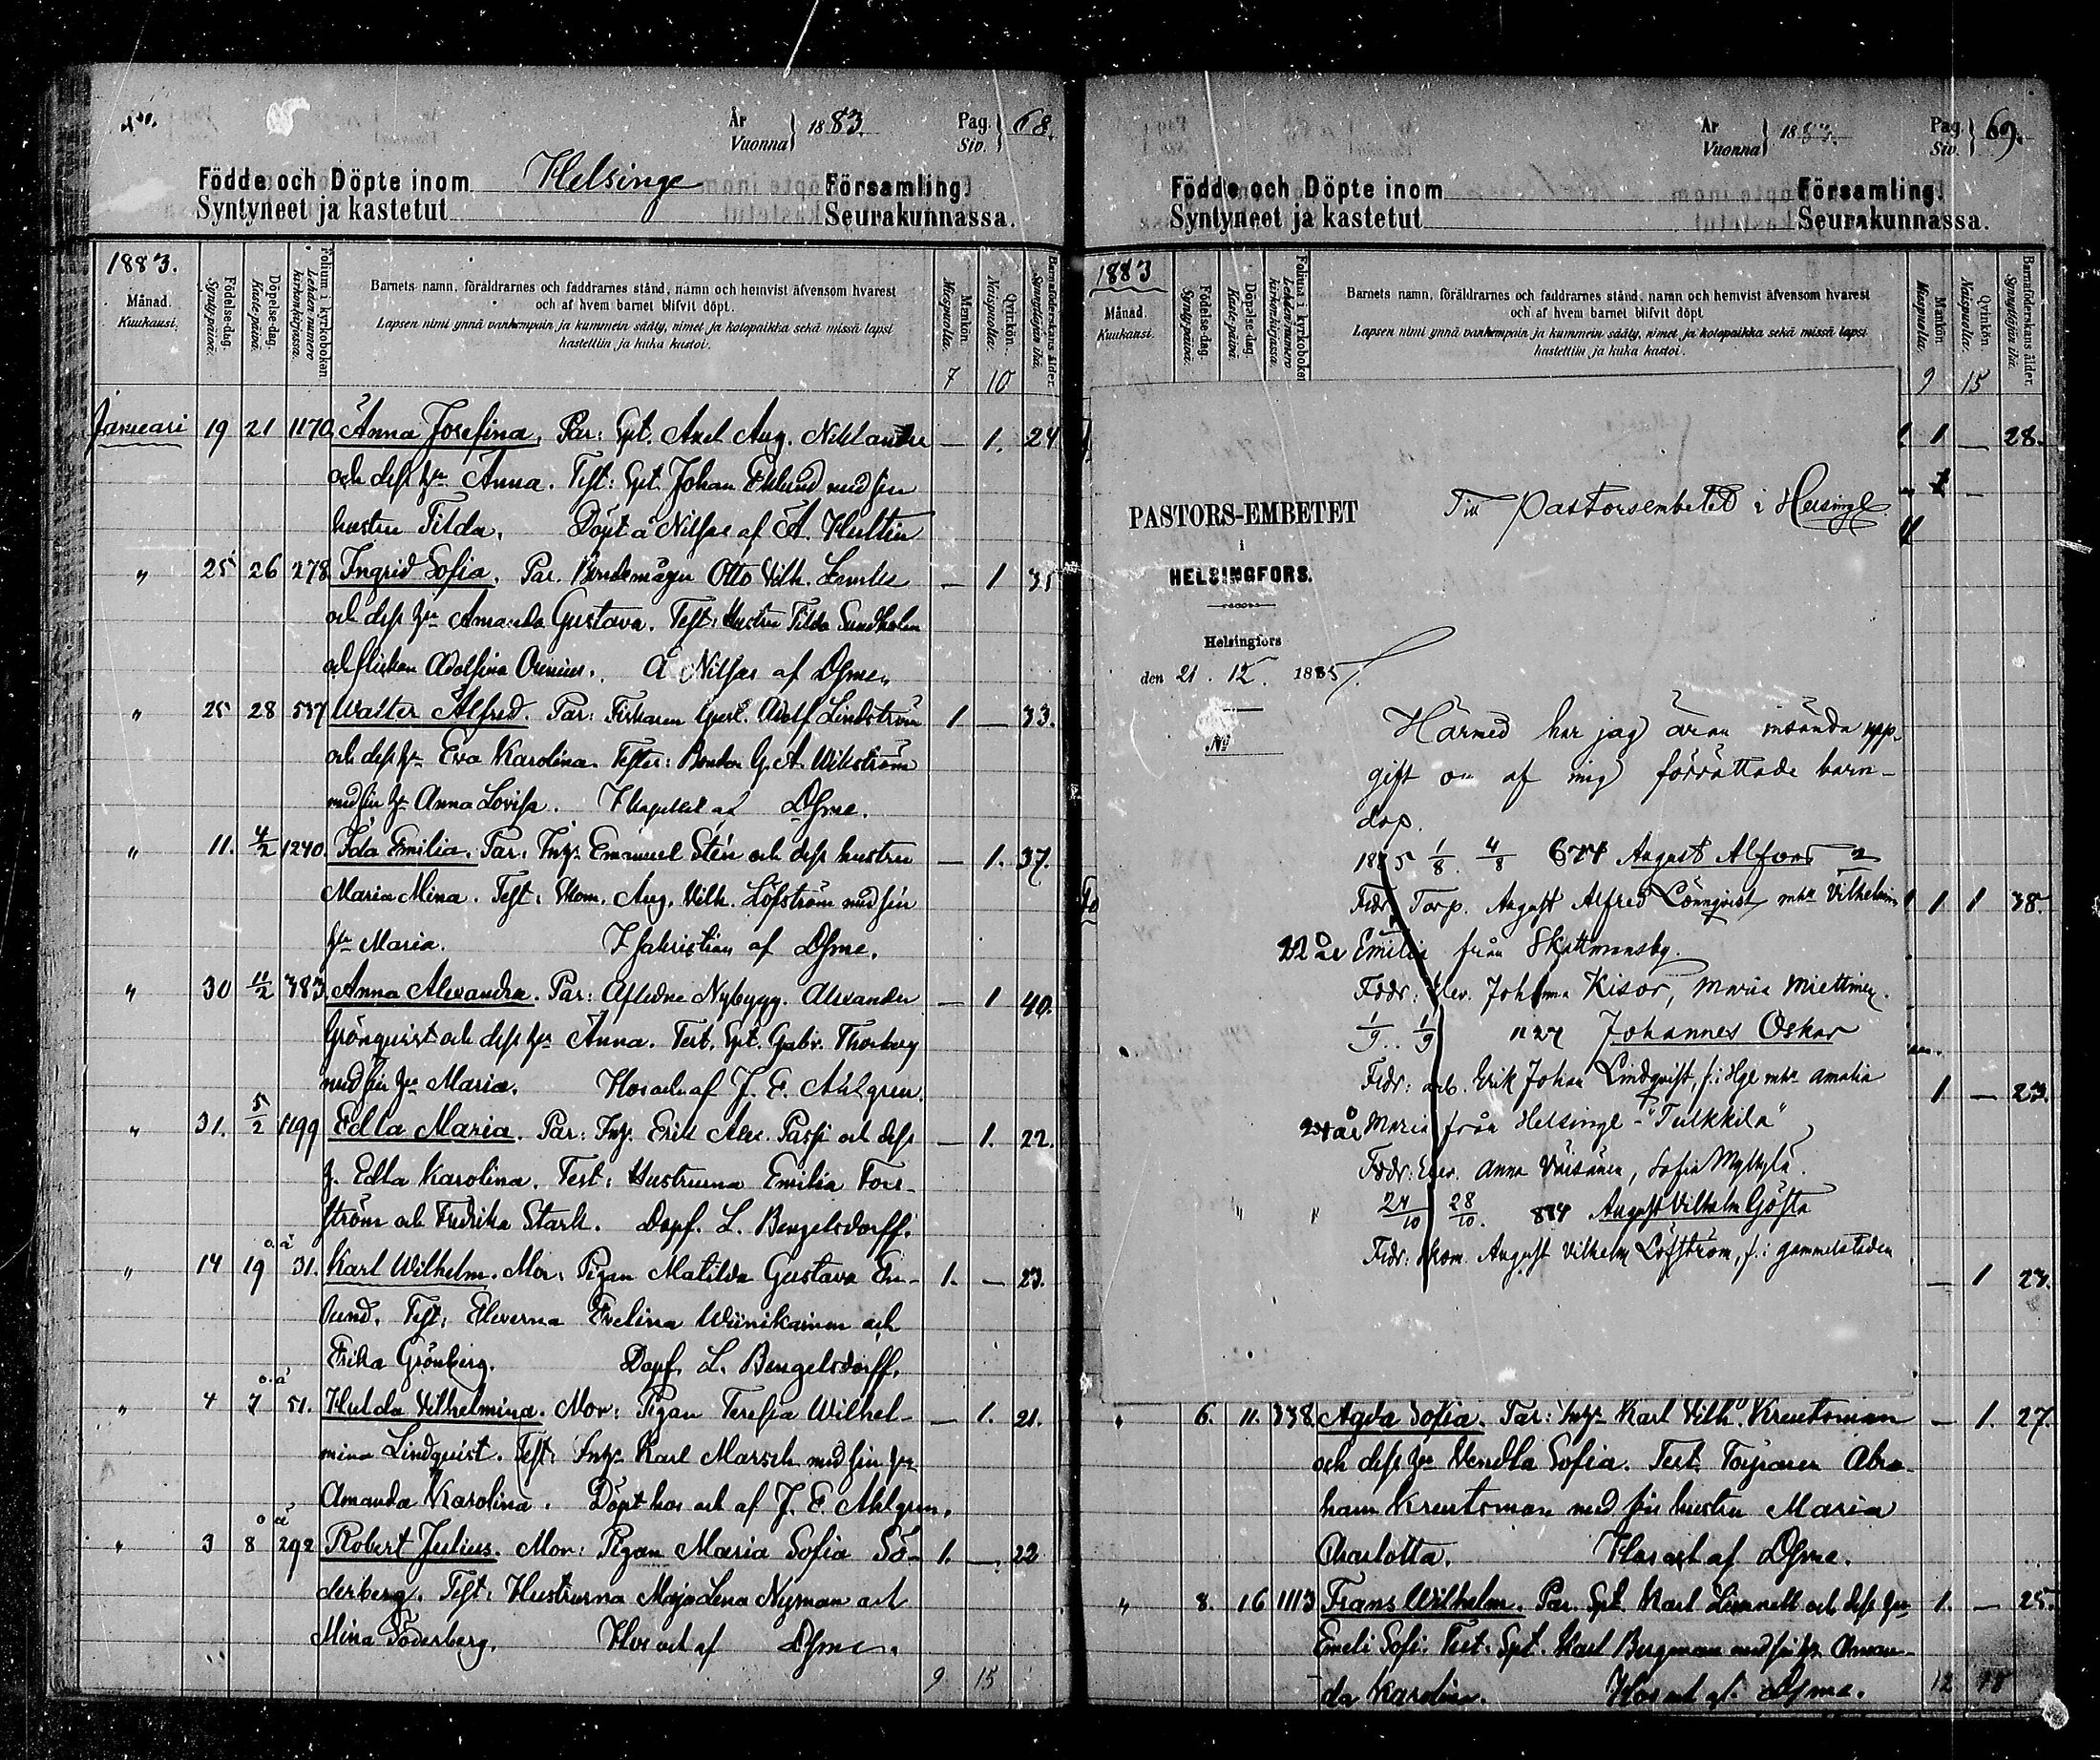 År
Vuonna
1883.
Pag.
Siv.
68.
Födde och Döpte inom Helsinge Församling.
Syntyneet ja kastetut Seurakunnassa.
1883.
Månad.
Kuukausi.
Födelse-dag.
Synty-päivä.
Döpelse-dag.
Kaste-päivä.
Folium i kyrkoboken
Lehden numero kirkonkirjassa.
Barnets namn, föräldrarnes och faddrarnes stånd, namn och hemvist äfvensom hvarest
och af hvem barnet blifvit döpt.
Lapsen nimi ynnä vanhempain ja kummein sääty, nimet ja kotopaikka sekä missä lapsi
kastettiin ja kuka kastoi.
Mankön.
Miespuolia.
Qvinkön.
Naispuolia.
Barnaföderskans ålder.
Synnyttäjän ikä.
7 10
Januari 19 21 1170 Anna Josefina. Par: Spt. Axel Aug. — 1. 24
och dess hu Anna. Test: Spt. Johan Eklund med sin
hustru Tilda. Döpt å Nilsas af A. Hultin
" 25 26 278 Ingrid Sofia. Par. Otto Vilh. — 1 35
och dess hu Amanda Gustava. Test: Hustru Tilda Sundholm
och flickan Adolfina. Å Nilsas af Dsme.
" 25 28 537 Walter Alfred. Par: Fiskaren Gust. Adolf Lindström 1 — 33.
och dess hu Eva Karolina. Test: Bonden G. A. Wikström
med sin hu Anna Lovisa. I kapellet af Dsme.
" 11. 4/2 1240. Ida Emilia. Par. Inhs. Emanuel Stén och dess hustru — 1. 37.
Maria Mina. Test: Skom. Aug. Vilh. Löfström med sin
hu Maria. I sakristian af Dsme.
" 30 11/2 383 Anna Alexandra. Par: Aflidne Nybygg. Alexander — 1 40.
Grönqvist och dess hu Anna. Test. Spt. Gabr. Thorberg
med sin hu Maria. Hos och af J. E. Ahlgren.
" 31. 5/2 1199 Edla Maria. Par: Inhs. Erik Alex. Passi och dess — 1. 22.
h. Edla Karolina. Test: Hustrurna Emilia Fors-
ström och Fredrika Stark. Döpf. L. Bengelsdorff.
" 14 19 o.ä 31. Karl Wilhelm. Mor: Pigan Matilda Gustava En- 1. — 23.
lund. Test: Eleverna Evelina Wiinikainen och
Erika Grönberg. Döpf. L. Bengelsdorff.
" 4 7 o.ä 51. Hulda Vilhelmina. Mor: Pigan Teresia Wilhel- — 1. 21.
mina Lindqvist. Test: Inhs. Karl Marsch med sin hu
Amanda Karolina. Döpt hos och af J. E. Ahlgren.
" 3 8 o ä 292 Robert Julius. Mor: Pigan Maria Sofia Sö- 1. — 22
derberg. Test: Hustrurna Maja Lena Nyman och
Mina Söderberg. Hos och af Dsme.
9 15
År
Vuonna
1883.
Pag.
Siv.
69.
Födde och Döpte inom Församling.
Syntyneet ja kastetut Seurakunnassa.
1883
Månad.
Kuukausi.
Födelse-dag.
Synty-päivä.
Döpelse-dag.
Kaste-päivä.
Folium i kyrkoboken
Lehden numero kirkonkirjassa.
Barnets namn, föräldrarnes och faddrarnes stånd, namn och hemvist äfvensom hvarest
och af hvem barnet blifvit döpt.
Lapsen nimi ynnä vanhempain ja kummein sääty, nimet ja kotopaikka sekä missä lapsi
kastettiin ja kuka kastoi.
Mankön
Miespuolia.
Qvinkön.
Naispuolia.
Barnaföderskans ålder.
Synnyttäjän ikä.
9 15
1 — 28.
PASTORS-EMBETET
i
HELSINGFORS.
Till Pastorsembetet i Helsinge
Helsingfors
den 21. 12. 1885
No
Härmed har jag äran insända upp-
gift om af mig förrättade barn-
dop.
1885 1/8. 4/8 674 August Alfons
Förr. Torp. August Alfred Lönnqvist mhu Vilhelmina
1 1 38.
22 år Emilia från Skattmansby.
Fadr: Elev. Johanna Kisor, Maria Miettinen.
1/9.. 1/9 1127 Johannes Oskar
Förr: arb. Erik Johan Lindqvist, f. i Hge mhu Amalia
1 — 23.
24 år Maria från Helsinge - "Tulkkila"
Fadr: Elev. Anna Väisänen, Sofia Myllylä.
" " 27/10 28/10. 884 August Vilhelm Gösta
Förr: skom. August Vilhelm Löfström, f. i Gammelstaden
— 1 27.
" 6. 11. 338. Agda Sofia. Par: Inhs. Karl Vilh. Kreutsman — 1. 27.
och dess hu Wendla Sofia. Test. Torparen Abra-
ham Kreutsman med sin hustru Maria
Charlotta. Hos och af Dsme.
" 8. 16 1113 Frans Wilhelm. Par. Spt. Karl Limnell och dess hu 1. — 25.
Emeli Sofi. Test: Spt. Karl Bergman med sin hu Aman-
da Karolina. Hos och af Dsme.
12 18